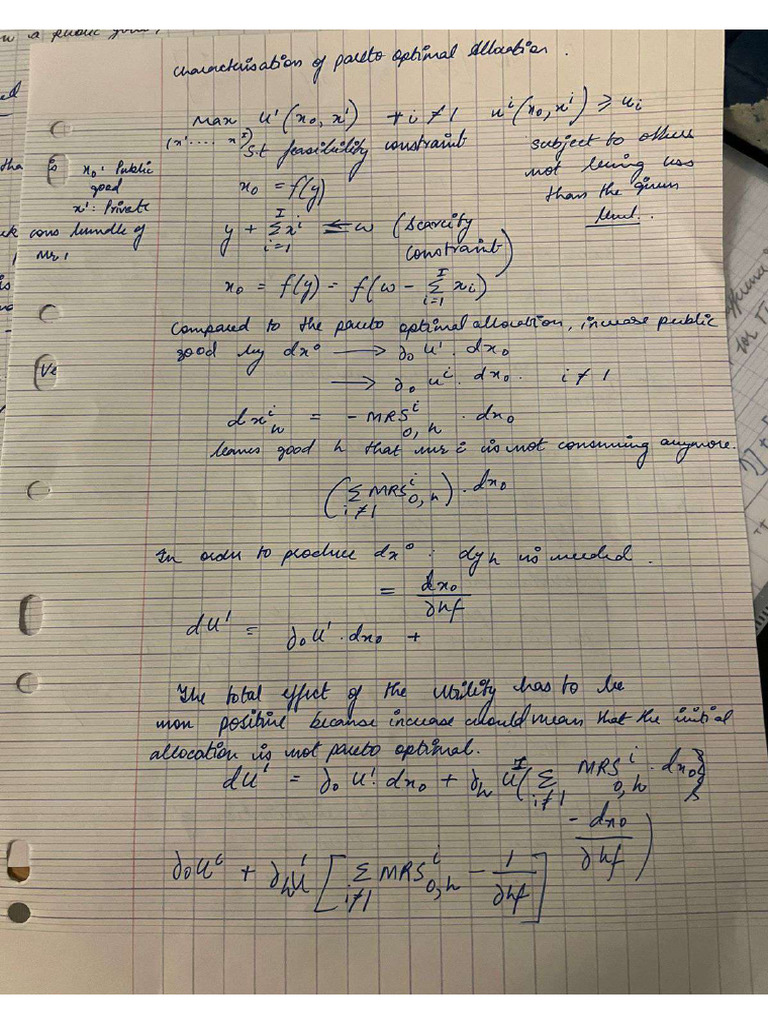 n a public good,
Characterisation of pareto optimal Allocation.
Max u¹(x₀, x¹) ∀ i ≠ 1 uⁱ(x₀, xⁱ) ≥ uᵢ
(x¹..... xᴵ)
s.t feasibility constraint
subject to others
not being less
than the given
level.
x₀ : Public
good
x¹ : Private
cons bundle of
Mr 1
x₀ = f(y)
y + Σᵢ₌₁ᴵ xⁱ ≤ w (Scarcity
constraint)
x₀ = f(y) = f(w - Σᵢ₌₁ᴵ xᵢ)
Compared to the pareto optimal allocation, increase public
good by dx⁰ ⟶ ∂₀ u¹. dx₀
⟶ ∂₀ uⁱ. dx₀. i ≠ 1
dxⁱₕ = - MRSⁱ₀,ₕ . dx₀
leaves good h that mr i is not consuming anymore.
(Σᵢ≠₁ MRSⁱ₀,ₕ) . dx₀
In order to produce dx⁰ : dyₕ is needed.
= dx₀/∂hf
du¹ = ∂₀u¹.dx₀ +
The total effect of the utility has to be
non positive because increase would mean that the initial
allocation is not pareto optimal.
du¹ = ∂₀ u¹. dx₀ + ∂ₕ uᴵ(Σᵢ≠₁ MRSⁱ₀,ₕ . dx₀}
- dx₀/∂hf)
∂₀uⁱ + ∂ₕu¹ [Σᵢ≠₁ MRSⁱ₀,ₕ - 1/∂hf]